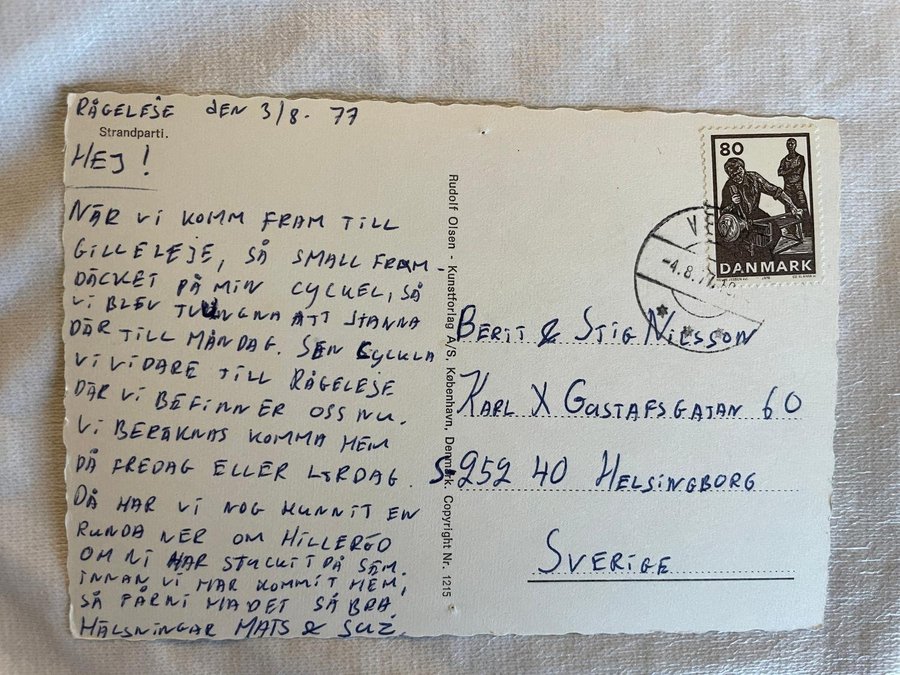 RÅGELEJE DEN 3/8. 77
Strandparti.
HEJ!
NÄR VI KOMM FRAM TILL
GILLELEJE, SÅ SMALL FRAM-
DÄCKET PÅ MIN CYCKEL, SÅ
VI BLEV TVUNGNA ATT STANNA
DÄR TILL MÅNDAG. SEN CYCKLA
VI VIDARE TILL RÅGELEJE
DÄR VI BEFINNER OSS NU.
VI BERÄKNAS KOMMA HEM
PÅ FREDAG ELLER LÖRDAG.
DÅ HAR VI NOG HUNNIT EN
RUNDA NER OM HILLERÖD
OM NI HAR STUCKIT PÅ SEM.
INNAN VI HAR KOMMIT HEM,
SÅ FÅR NI HA DET SÅ BRA
HÄLSNINGAR MATS & SUZ.
Rudolf Olsen - Kunstforlag A/S. København, Denmark. Copyright Nr. 1215
80
DANMARK
-4.8.77
BERIT & STIG NILSSON
KARL X GUSTAFSGATAN 60
S-252 40 HELSINGBORG
SVERIGE